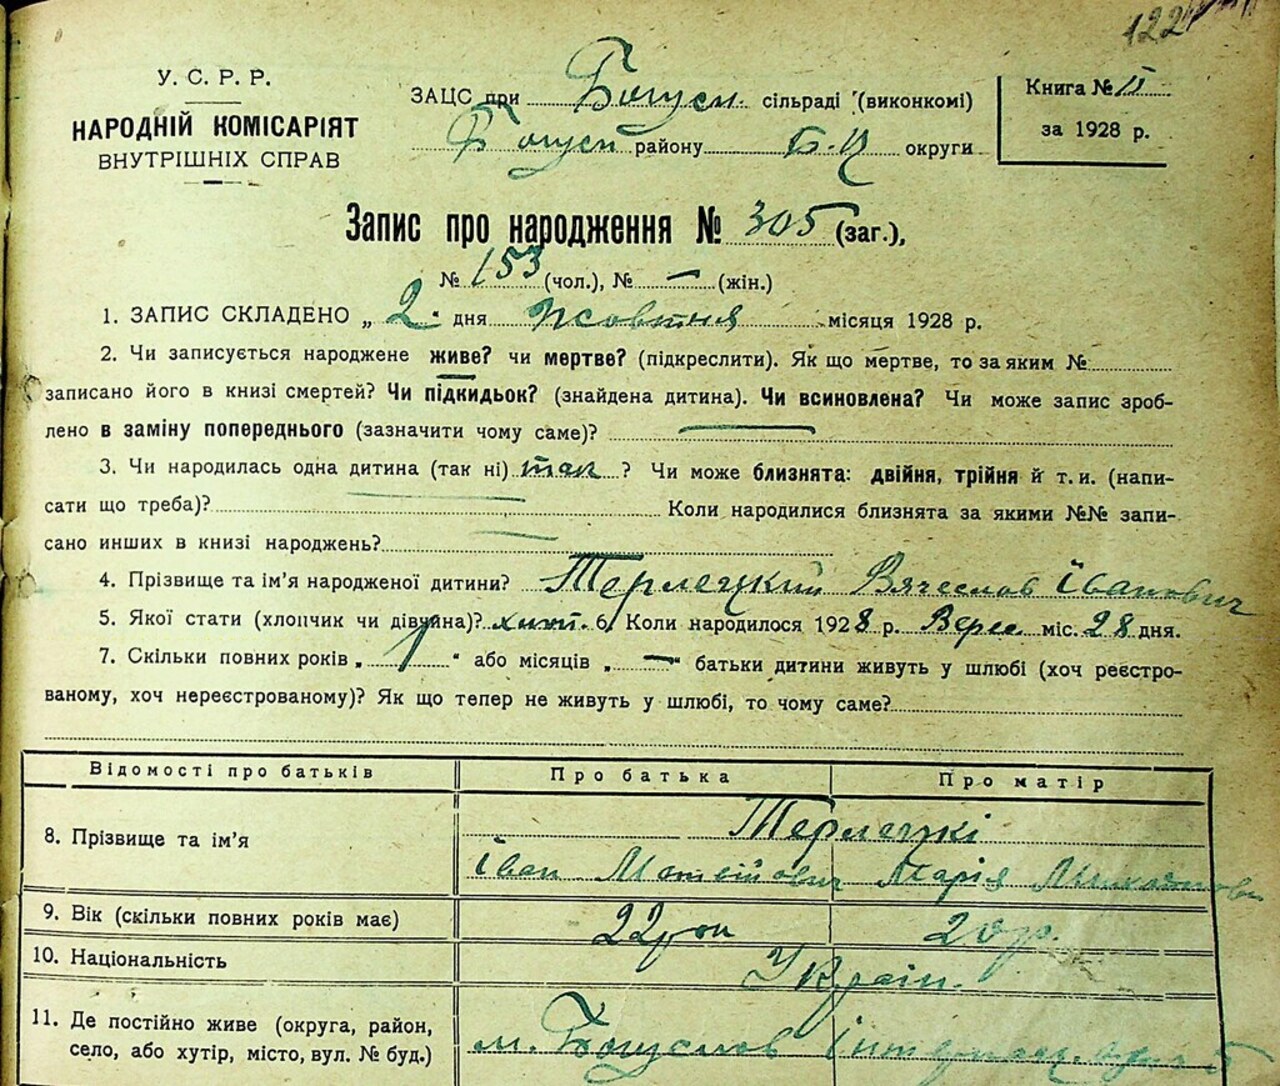 122
У. С. Р. Р.
НАРОДНІЙ КОМІСАРІЯТ
ВНУТРІШНІХ СПРАВ
ЗАЦС при Богусл. сільраді (виконкомі)
Богусл району Б-Ц округи
Книга № II
за 1928 р.
Запис про народження № 305 (заг.),
№ 153 (чол.), № — (жін.)
1. ЗАПИС СКЛАДЕНО „ 2 " дня Жовтня місяця 1928 р.
2. Чи записується народжене живе? чи мертве? (підкреслити). Як що мертве, то за яким №
записано його в книзі смертей? Чи підкидьок? (знайдена дитина). Чи всиновлена? Чи може запис зроб-
лено в заміну попереднього (зазначити чому саме)? —
3. Чи народилась одна дитина (так ні) так ? Чи може близнята: двійня, трійня й т. и. (напи-
сати що треба)? — Коли народилися близнята за якими №№ запи-
сано инших в книзі народжень? —
4. Прізвище та ім'я народженої дитини? Терлецкий Вячеслав Іванович
5. Якої стати (хлопчик чи дівчина)? 6. Коли народилося 1928 р. Верес. міс. 28 дня.
7. Скільки повних років „ 1 " або місяців „ — " батьки дитини живуть у шлюбі (хоч реєстро-
ваному, хоч нереєстрованому)? Як що тепер не живуть у шлюбі, то чому саме?
Відомості про батьків Про батька Про матір
8. Прізвище та ім'я Терлецкі
Іван Матвійович Марія
9. Вік (скільки повних років має) 22 рок 20 р.
10. Національність Україн.
11. Де постійно живе (округа, район,
село, або хутір, місто, вул. № буд.) м. Богуслав